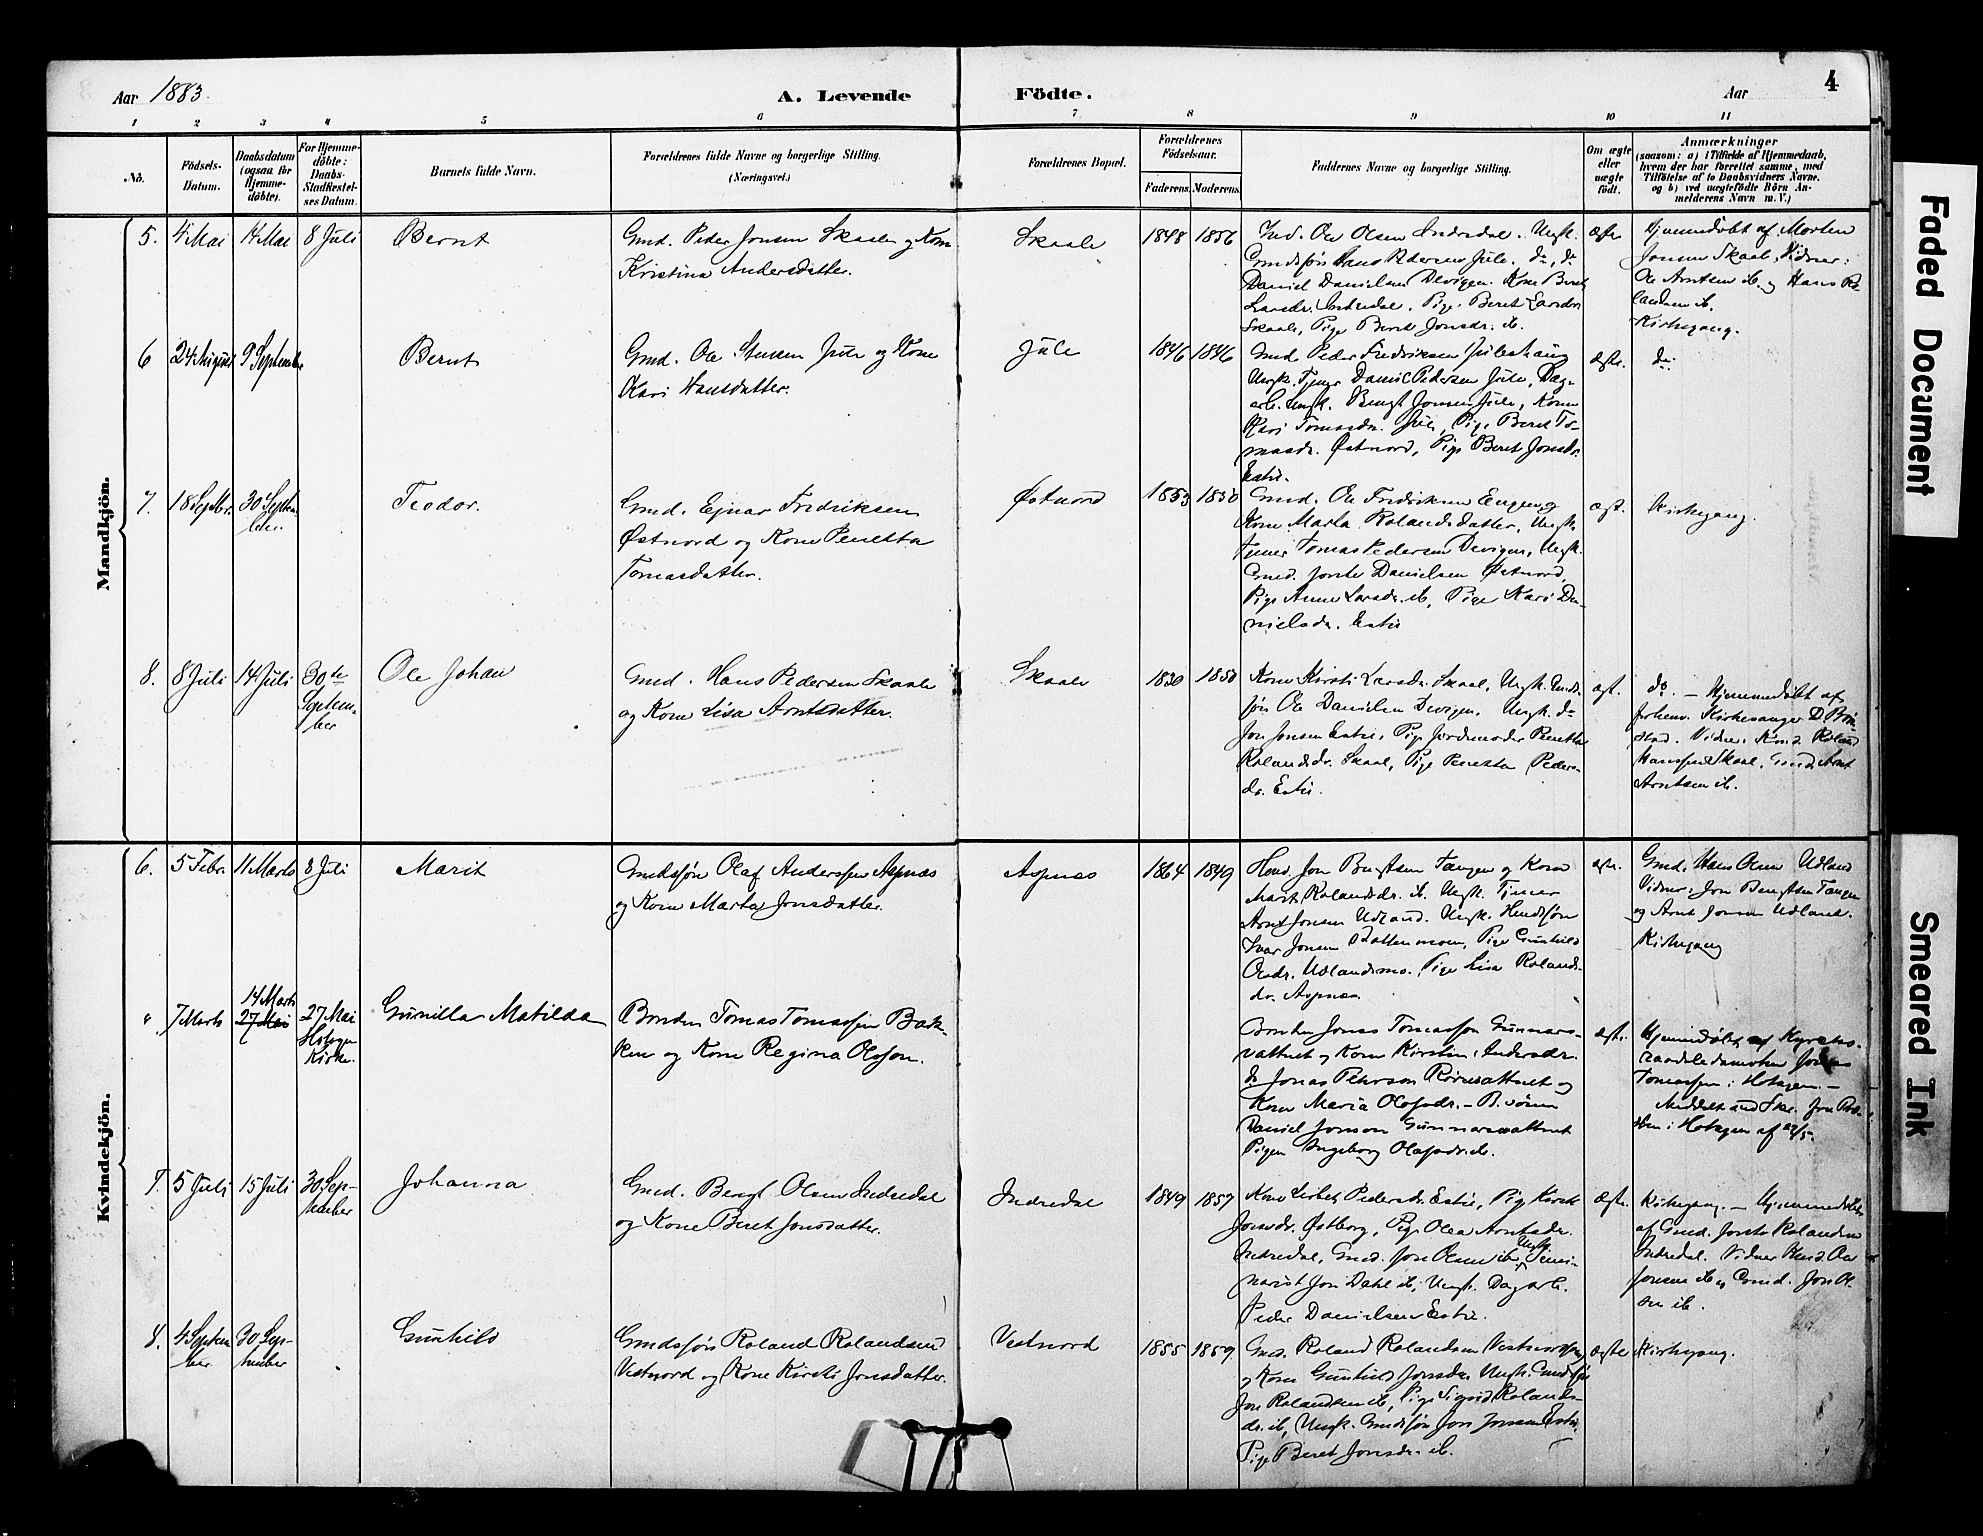 Aar 1883.
A. Levende Födte.
Aar
4
1 2 3 4 5 6 7 8 9 10 11
No.
Födsels-
Datum.
Daabsdatum
(ogsaa for
Hjemme-
döbte).
For Hjemme-
döbte:
Daabs-
Stadfæstel-
ses Datum.
Barnets fulde Navn.
Forældrenes fulde Navne og borgerlige Stilling.
(Næringsvei.)
Forældrenes Bopæl.
Forældrenes
Födselsaar.
Faderens. Moderens.
Faddernes Navne og borgerlige Stilling.
Om ægte
eller
uægte
födt.
Anmærkninger
(saasom: a) i Tilfælde af Hjemmedaab,
hvem der har forrettet samme, med
Tilföielse af to Daabsvidners Navne,
og b) ved uægtefödte Börn An-
melderens Navn m. V.)
Mandkjön.
5. 4 Mai 14 Mai 8 Juli
Bernt
Gmd. Peder Jonsen Skaale og Kone
Kristina Andersdatter.
Skaale
1848 1856
Ind. Ole Olsen Indredal. Ungk.
Gmdsføn Hans Pedersen Jule. do, do
Daniel Danielsen Devigen. Kone Beret
Larsdr. Indredal, Pige Beret Larsdr.
Skaale, Pige Beret Jonsdr. ib.
ægte
Hjemmedøbt af Morten
Jonsen Skaale, Vidner:
Ole Arntsen ib. og Hans Ro-
landsen ib.
Kirkegang.
6 24 August 9 September
Bernt
Gmd. Ole Jule og Kone
Kari Hansdatter.
Jule
1846 1846
Gmd. Peder Fredriksen Juleshaug
Ungk. Tjener Daniel Pedersen Jule, Dag-
arb. Ungk. Bengt Jonsen Jule, Kone
Kari Tomasdr. Jule, Pige Beret To-
masdr. Østnord, Pige Beret Jonsdr.
Estie.
ægte.
do.
7. 18 Septbr. 30 Septem-
ber.
Teodor.
Gmd. Ejnar Fredriksen
Østnord og Kone Peretta
Tomasdatter.
Østnord
1853 1850
Gmd. Ole Fredriksen Eugen og
Kone Marta Rolandsdatter, Ungk.
Tjener Tomas Pedersen Devigen, Ungk.
Gmd. Jorste Danielsen Østnord,
Pige Anne Larsdr. ib, Pige Kari Da-
nielsdr. Estie
ægt.
Kirkegang.
8. 8 Juli 14 Juli 30te
Septem-
ber
Ole Johan
Gmd. Hans Pedersen Skaale
og Kone Lisa Arntsdatter.
Skaale
1830 1850
Kone Kirsti Larsdr. Skaal, Ungk. Gmds-
føn Ole Danielsen Devigen, Ungk. do
Jon Jonsen Estie, Pige Jordemoder Peretta
Rolandsdr. Skaal, Pige Peretta Peders-
dr. Estie.
ægt.
do. - Hjemmedøbt af
Kirkesanger D.
Vidner: Gmd. Roland
Hanssen Skaal, Gmd. Arnt
Arntsen ib.
Kvindekjön.
6. 5 Febr. 11 Marts 8 Juli
Marit
Gmdsføn Olaf Anderssen Aspnæs
og Kone Marta Jonsdatter.
Aspnæs
1864 1849
Hmd. Jon Bengtsen Tangen og Kone
Marit Rolandsdr. ib. Ungk. Tjener
Arnt Jonsen Udland. Ungk. Hmdsføn
Ivar Jonsen moen, Pige Gunhild
Olsdr. Udlandsmo, Pige Lisa Rolands-
dr. Aspnæs
ægte.
Gmd. Hans Olsen Udland
Vidner: Jon Bengtsen Tangen
og Arnt Jonsen Udland.
Kirkegang
" 7 Marts 14 Marts
27 Mai 27 Mai
Hotagen
Kirke.
Gunilla Matilda
Bonden Tomas Tomassen Bak-
ken og Kone Regina Olsson.
Bonden Jonas Tomasson Gunnars-
vattnet og Kone Kirstin Andersdr.
do Jonas Person Rörvattnet og
Kone Maria Olofsdr. -
Daniel Jonson Gunnarsvattnet
Pigen Ingeborg Olofsdr. ib.
ægte.
Hjemmedøbt af Kyrko-
raadsledamoten Jonas
Tomassen i Hotagen. -
i Hotagen af 27/5.
7. 5 Juli 15 Juli 30 Sep-
tember
Johanna
Gmd. Bengt Olsen Indredal
og Kone Beret Jonsdatter.
Indredal
1849 1857
Kone Lisbet Pedersdr. Estie, Pige Kirsti
Jonsdr. Østborg, Pige Olea Arntsdr.
Indredal, Gmd. Jon Olsen ib., Ungk. Semi-
narist Jon Dahl ib, Ungk. Dagarb.
Peder Danielsen Estie.
ægte.
Kirkegang. - Hjemmedøbt
af Gmd. Jorste Rolandsen
Indredal. Vidner Gmd. Ole
Jonsen ib og Gmd. Jon Ol-
sen ib.
8. 4 Septem-
ber 30 Sep-
tember
Gunhild
Gmdsføn Roland Rolandsen
Vestnord og Kone Kirsti Jonsdatter.
Vestnord
1855 1859
Gmd. Roland Rolandsen Vestnord
og Kone Gunhild Jonsdr. Ungk. Gmdsføn
Jon Rolandsen ib, Pige Sigrid Rolands-
dr. ib, Ungk. Gmdsføn Jon Jonsen Estie,
Pige Beret Jonsdr. ib.
ægte
Kirkegang.
Faded Document
Smeared Ink